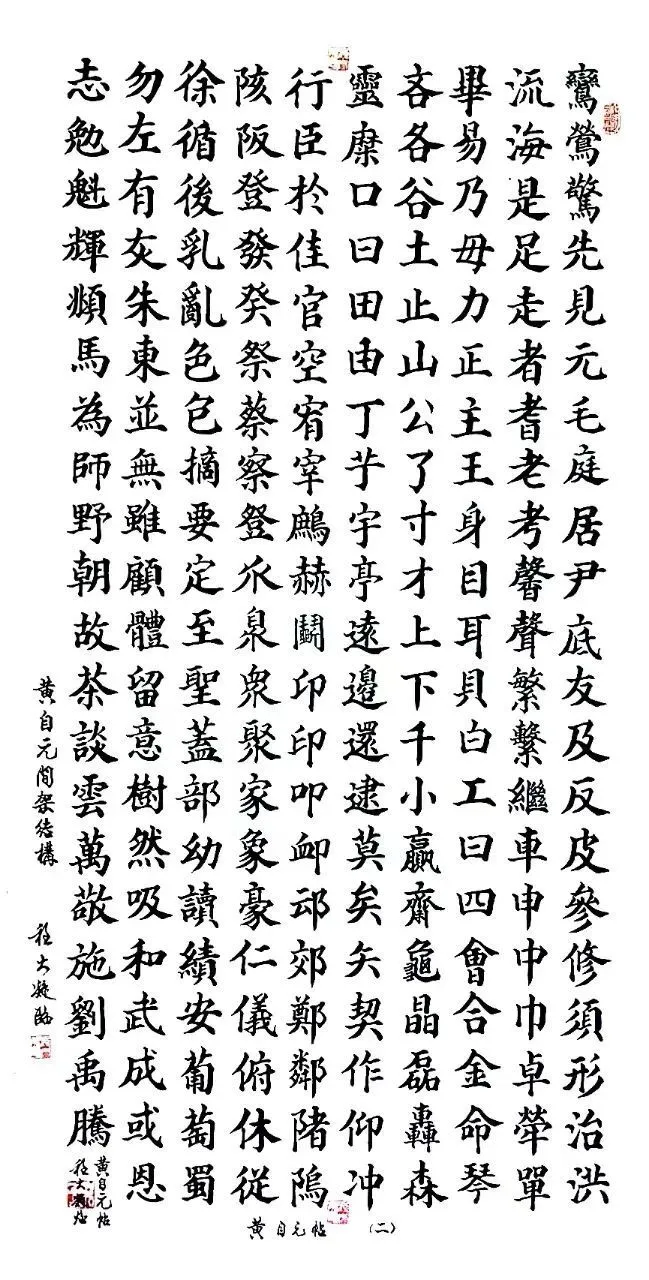 鸞鶯驚先見元毛庭居尹底友及反皮參修須形治洪
流海是足走者耆老考馨聲繁繫繼車申中巾卓犖單
畢易乃毋力正主王身目耳貝白工曰四會合金命琴
吝各谷土止山公了寸才上下千小贏齋龜晶磊轟森
靈麋口曰田由丁于宇亭遠邊還逮莫矣矢契作仰冲
行臣於佳官空宥宰鷓赫鬪卯印叩卹邙郊鄭鄰陼隝
陔阪登發癸祭蔡察登爪泉眾聚家象豪仁儀俯休從
徐循後乳亂色包摘要定至聖蓋部幼讀績安葡萄蜀
勿左有灰朱東並無雖顧體留意樹然吸和武成或恩
志勉魁輝頻馬為師野朝故茶談雲萬敬施劉禹騰
黄自元帖
程大凝
黄自元間架结構
程大凝臨
黄自元帖 (二)